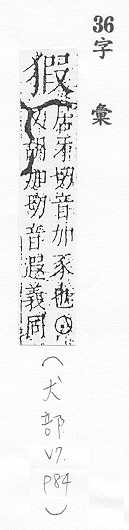 36字彙
猳
居牙切音加豕也○
又胡加切音遐義同
(犬部 V7. P84)